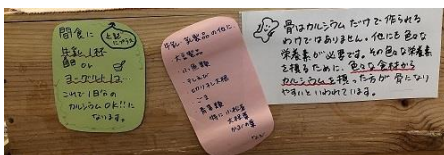 間食に
上記にプラス
牛乳1杯
or
ヨーグルトは…
これで1日分の
カルシウムOK!!に
なります。
牛乳・乳製品の他に
大豆製品
小魚類
ひじき
切りぼし大根
ごま
青菜類
特に小松菜
大根葉
かぶの葉
など
骨はカルシウムだけで作られる
わけではありません。他にも色々な
栄養素が必要です。その色々な栄養素
を摂るために、色々な食材から
カルシウムを摂った方が骨になり
やすいといわれています。